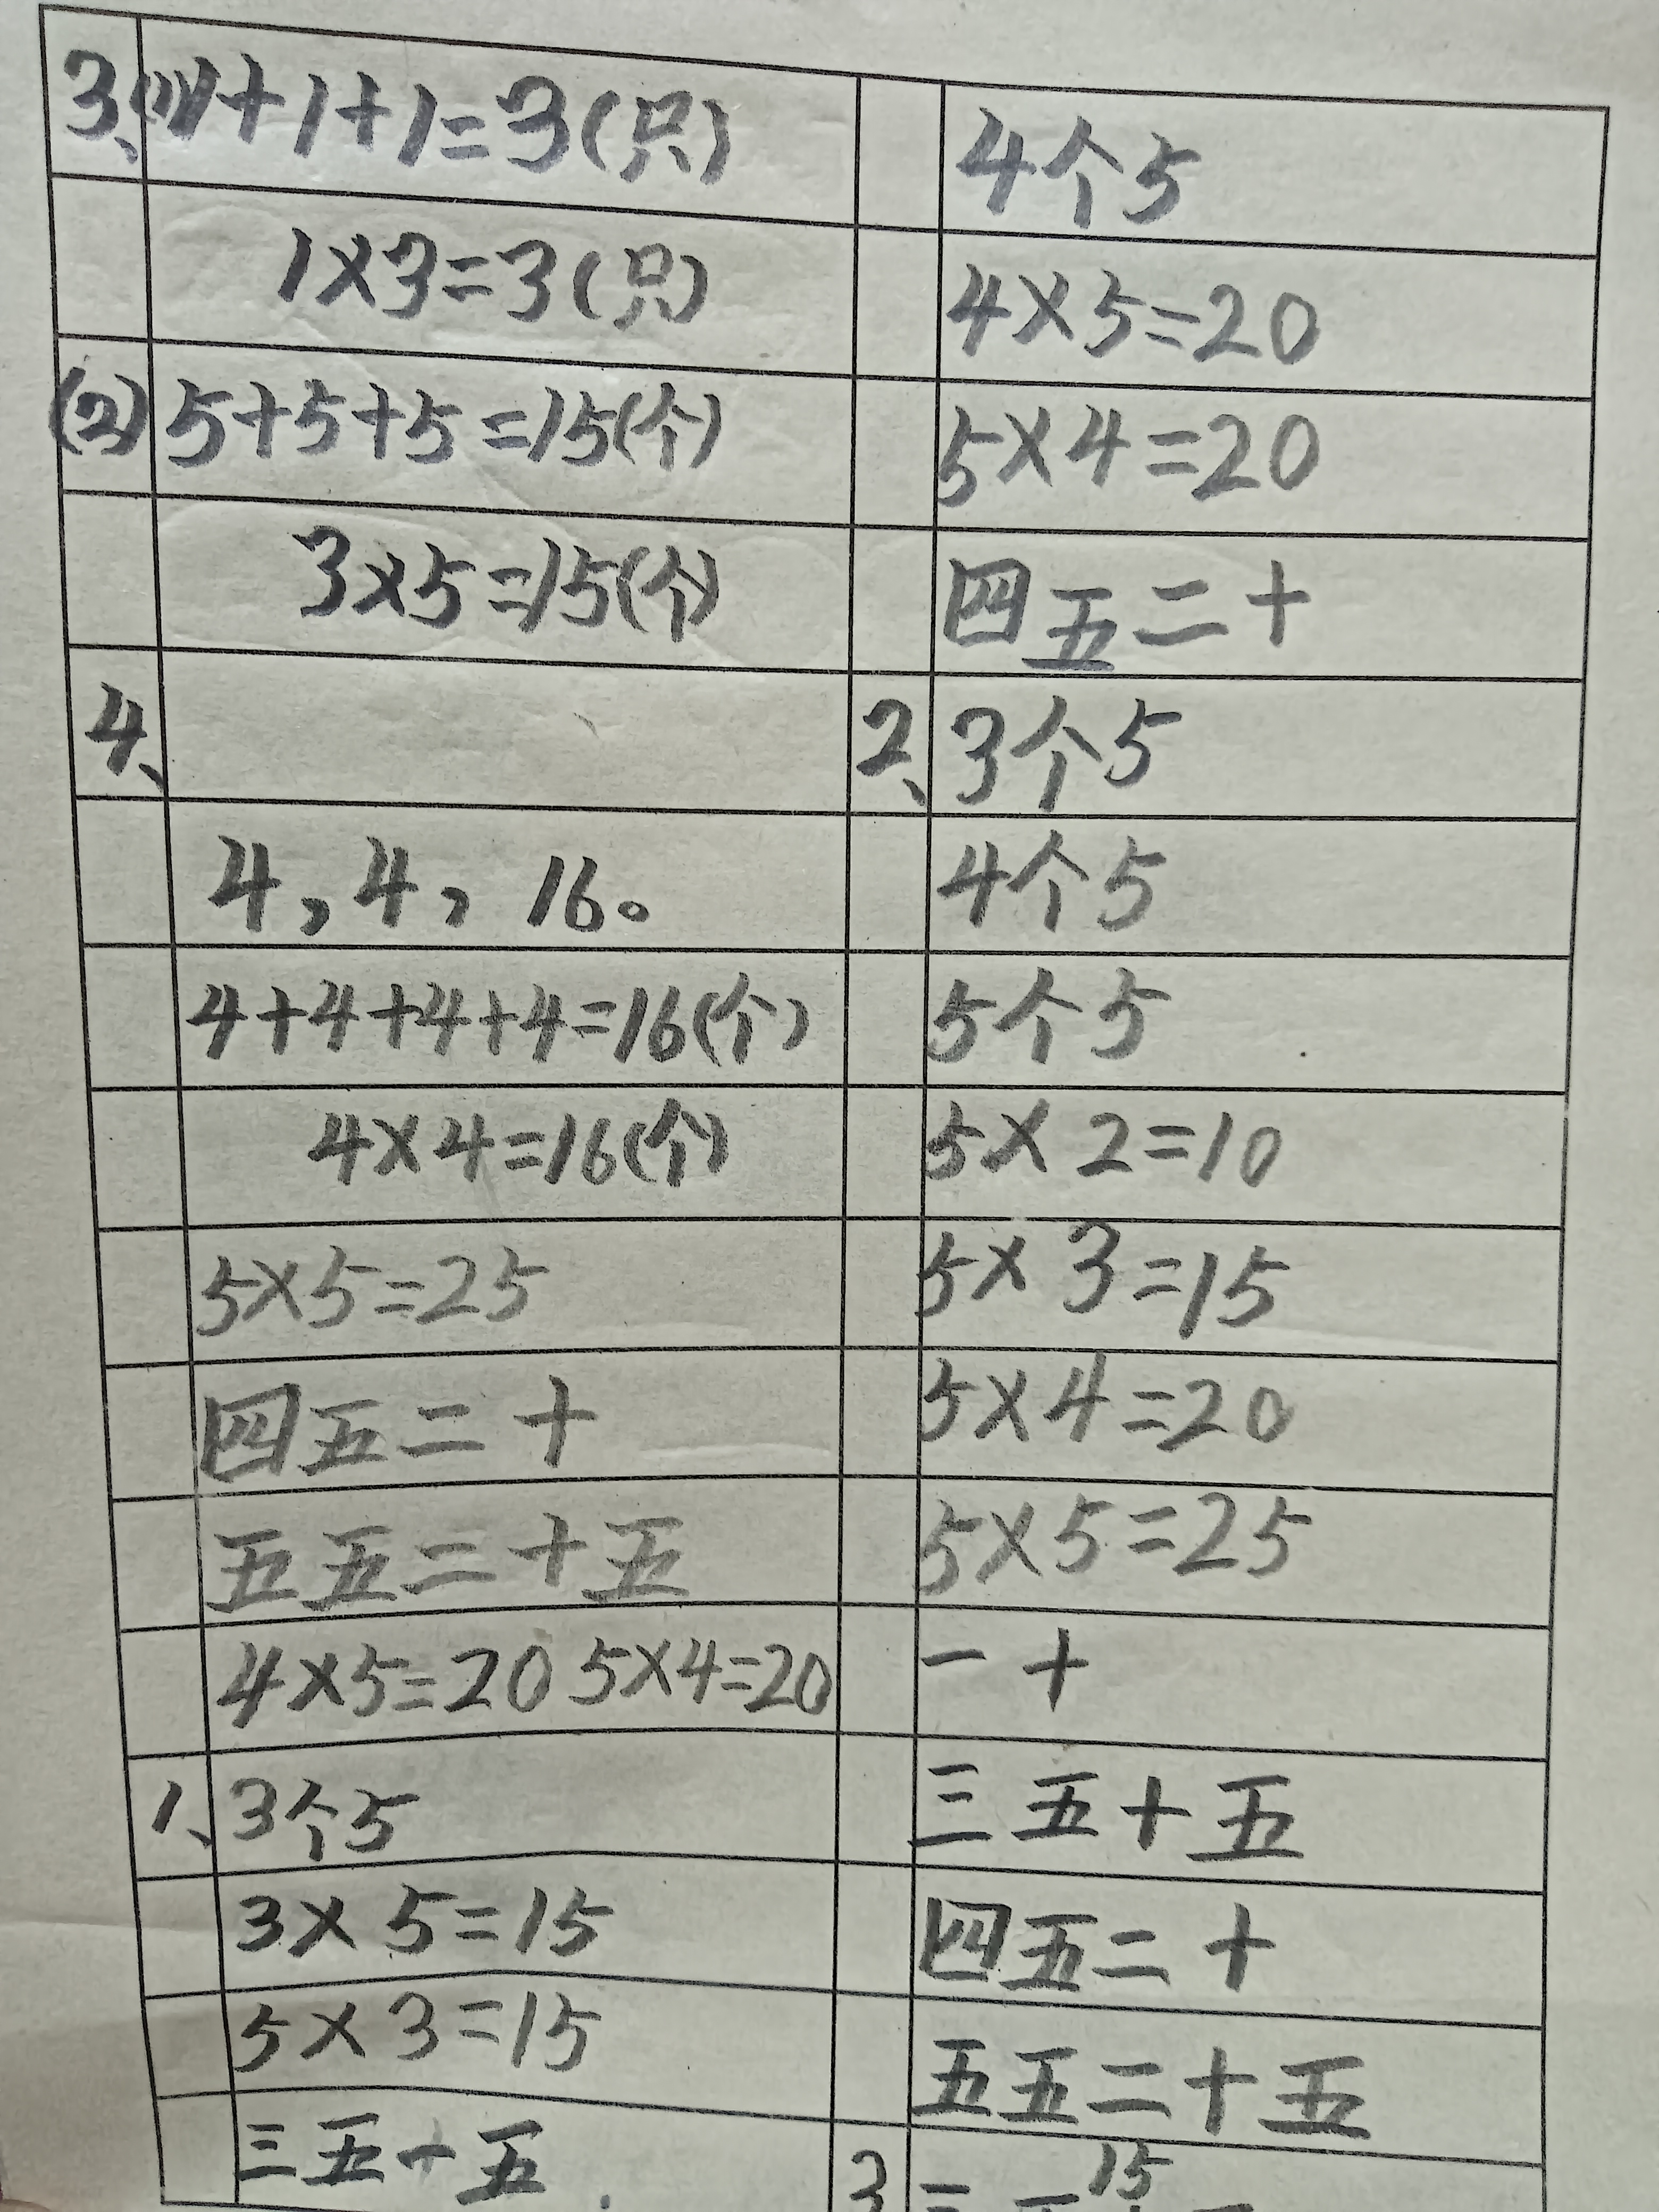 3、(1)1+1+1=3(只)
1×3=3(只)
(2)5+5+5=15(个)
3×5=15(个)
4、
4,4,16。
4+4+4+4=16(个)
4×4=16(个)
5×5=25
四五二十
五五二十五
4×5=20 5×4=20
1、3个5
3×5=15
5×3=15
三五十五
4个5
4×5=20
5×4=20
四五二十
2、3个5
4个5
5个5
5×2=10
5×3=15
5×4=20
5×5=25
一十
三五十五
四五二十
五五二十五
3 15